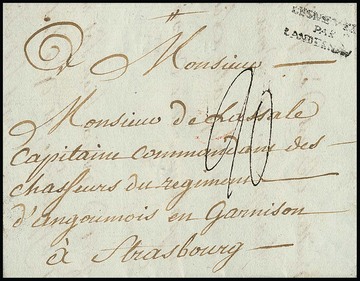 LESNEVEN
PAR
LANDERNAU
A Monsieur
Monsieur de chassale
Capitaine commandant des
chasseurs du regiment
d'angoumois en Garnison
à Strasbourg
20